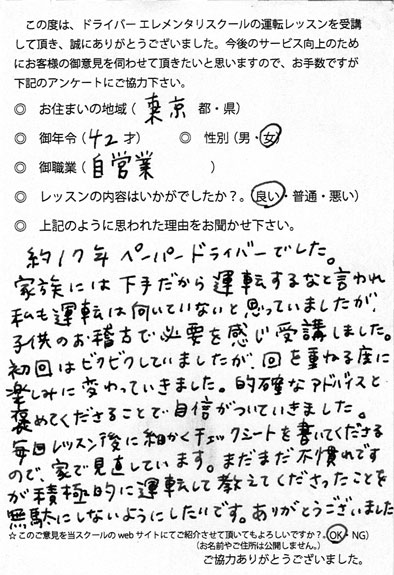 この度は、ドライバー エレメンタリスクールの運転レッスンを受講
して頂き、誠にありがとうございました。今後のサービス向上のため
にお客様の御意見を伺わせて頂きたいと思いますので、お手数ですが
下記のアンケートにご協力下さい。
◎ お住まいの地域（ 東京 都・県）
◎ 御年令（42 才） ◎ 性別（男・女）
◎ 御職業（自営業 ）
◎ レッスンの内容はいかがでしたか？。（良い・普通・悪い）
◎ 上記のように思われた理由をお聞かせ下さい。
約17年ペーパードライバーでした。
家族には下手だから運転するなと言われ
私も運転は向いていないと思っていましたが、
子供のお稽古で必要を感じ受講しました。
初回はビクビクしていましたが、回を重ねる度に
楽しみに変わっていきました。的確なアドバイスと
褒めてくださることで自信がついていきました。
毎回レッスン後に細かくチェックシートを書いてくださる
ので、家で見直しています。まだまだ不慣れです
が積極的に運転して教えてくださったことを
無駄にしないようにしたいです。ありがとうございました
☆このご意見を当スクールの web サイトにてご紹介させて頂いてもよろしいですか？。（OK・NG）
（お名前やご住所は公開しません。）
ご協力ありがとうございました。